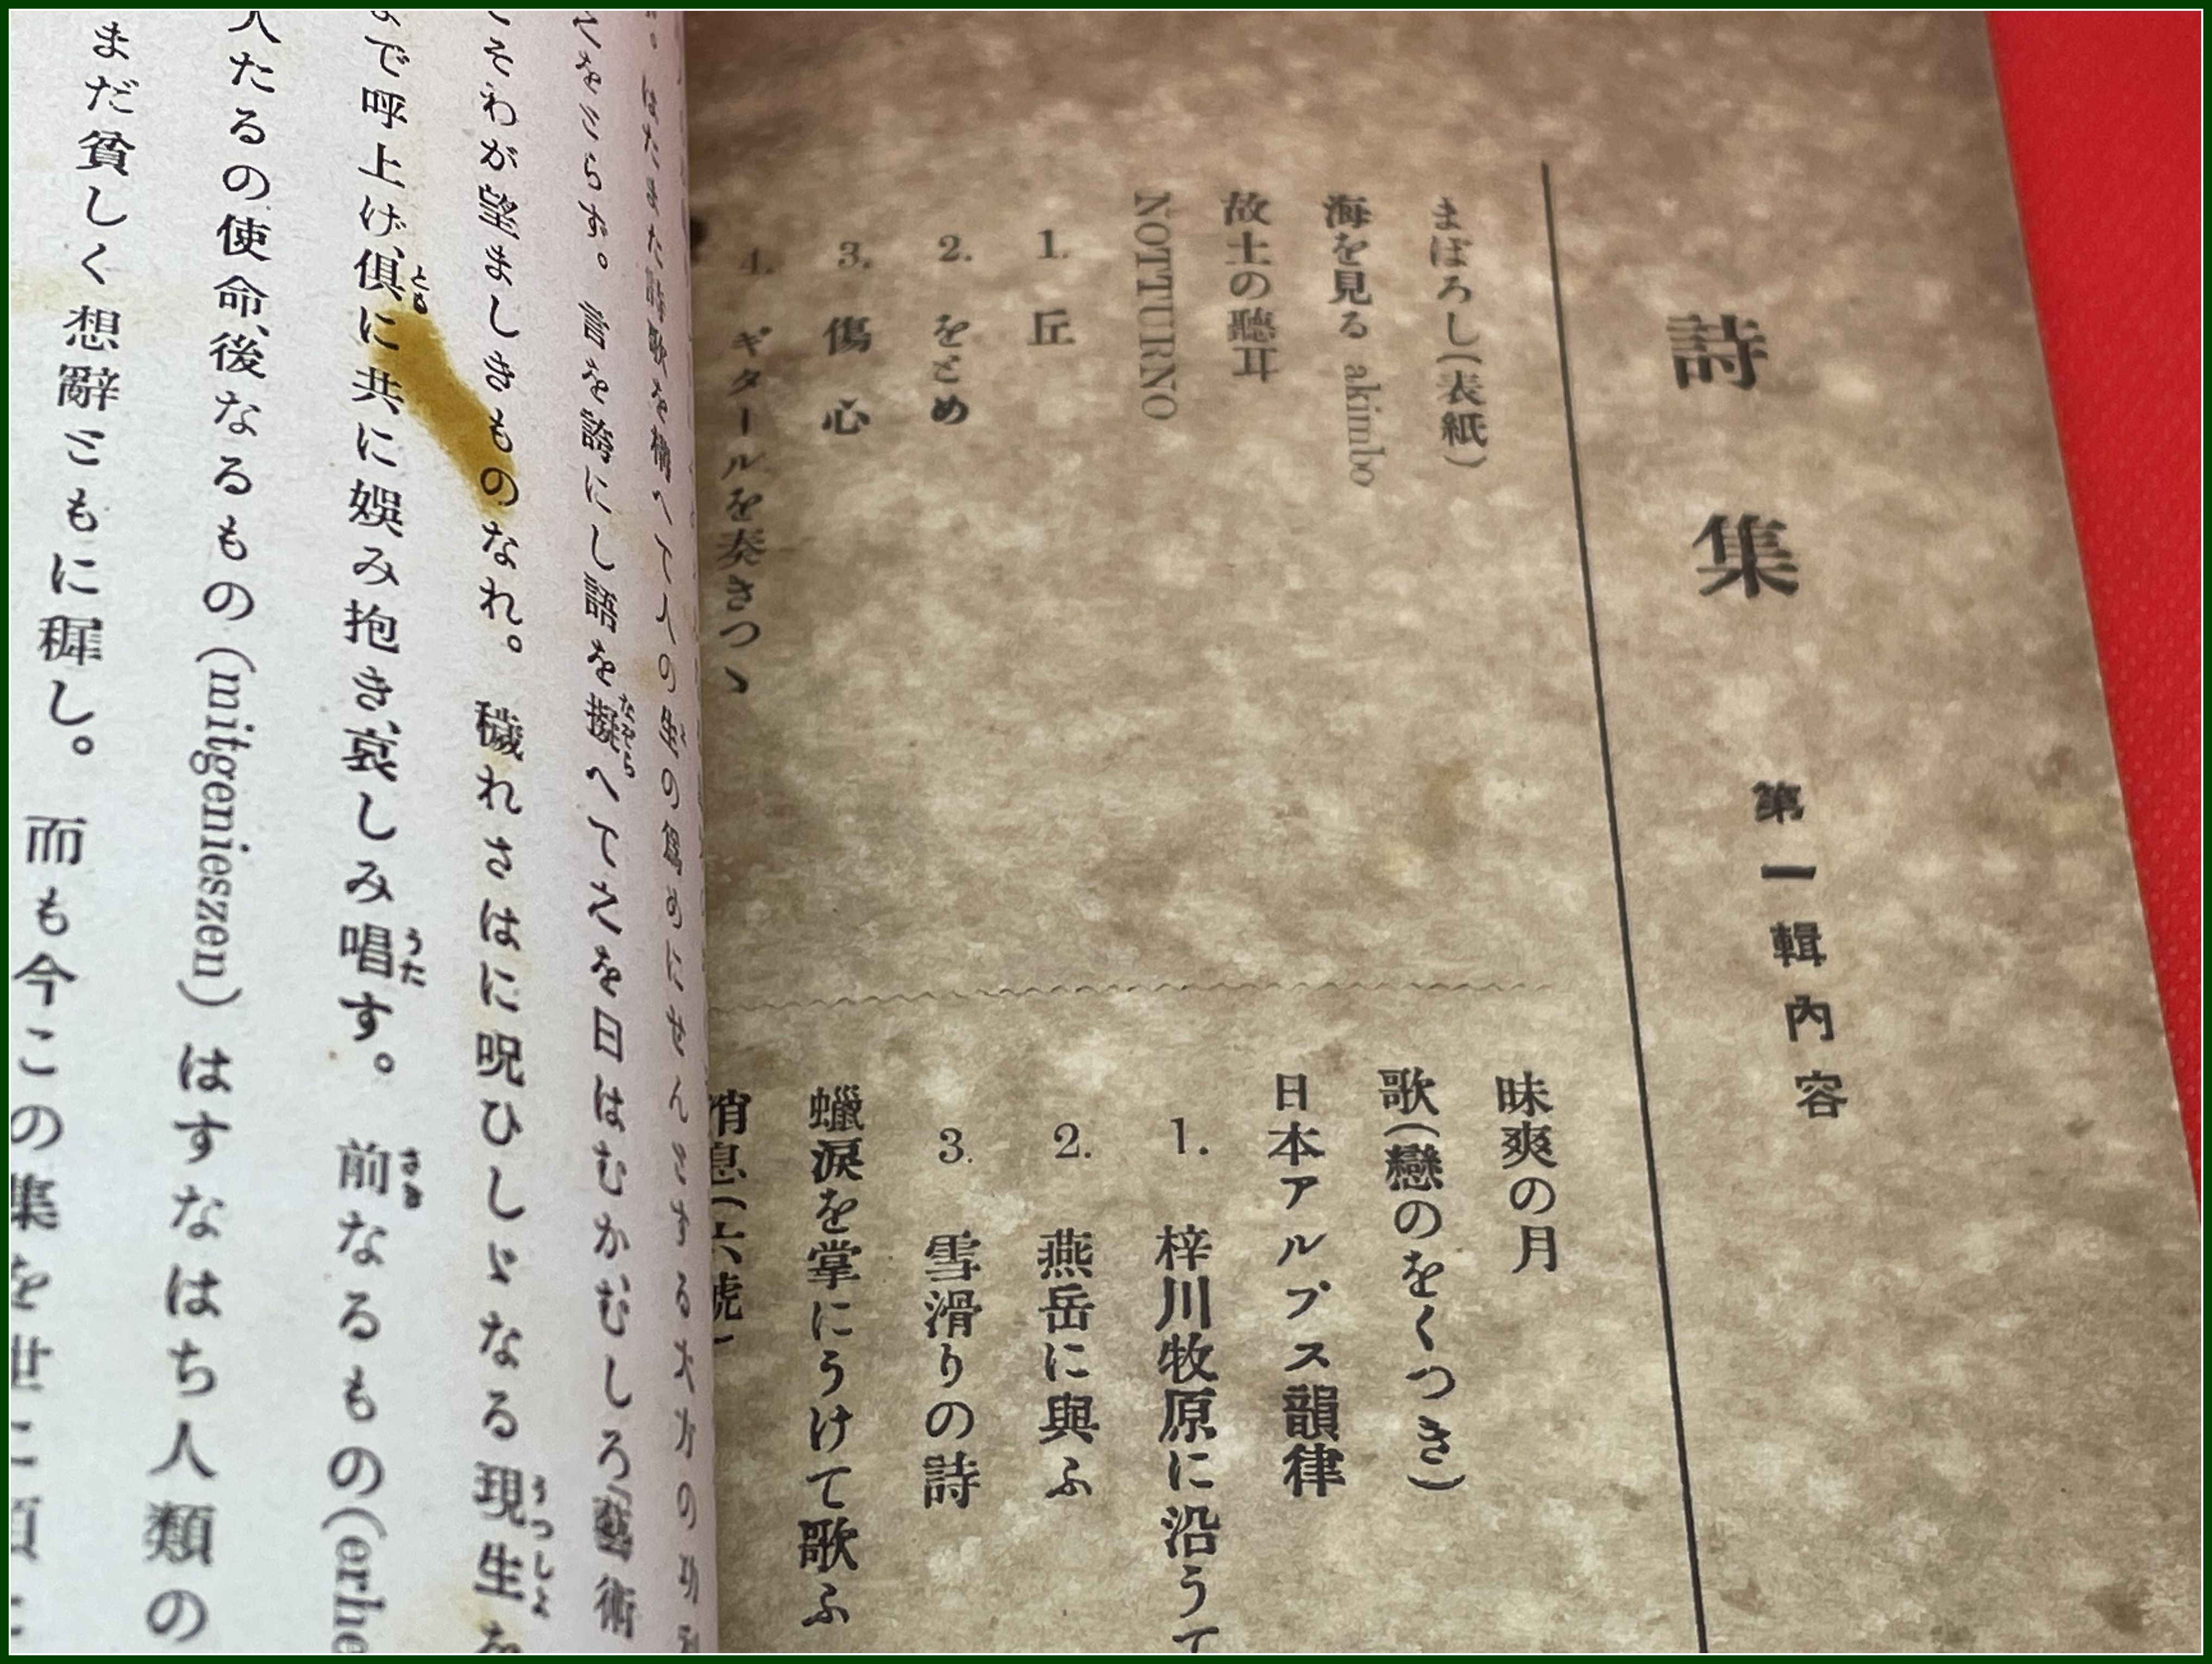 詩集 第一輯內容
まぼろし(表紙)
海を見る akimbo
故土の聽耳
NOTTURNO
1. 丘
2. をとめ
3. 傷心
4. ギタールを奏きつゝ
昧爽の月
歌(戀のをくつき)
日本アルプス韻律
1. 梓川牧原に沿うて
2. 燕岳に與ふ
3. 雪滑りの詩
蠟涙を掌にうけて歌ふ
消息(六號)
はたまた詩歌を構へて人の生の爲めにせんとする大方の功利
言を謗にし語を擬へてたを日はむかむしろ藝術
こそわが望ましきものなれ。 穢れさはに呪ひしとなる現生を
で呼上げ、俱に共に娯み抱き、哀しみ唱す。 前なるもの(erhe
人たるの使命、後なるもの(mitgenieszen)はすなはち人類の
まだ貧しく想辭ともに穉し。 而も今この集を世に